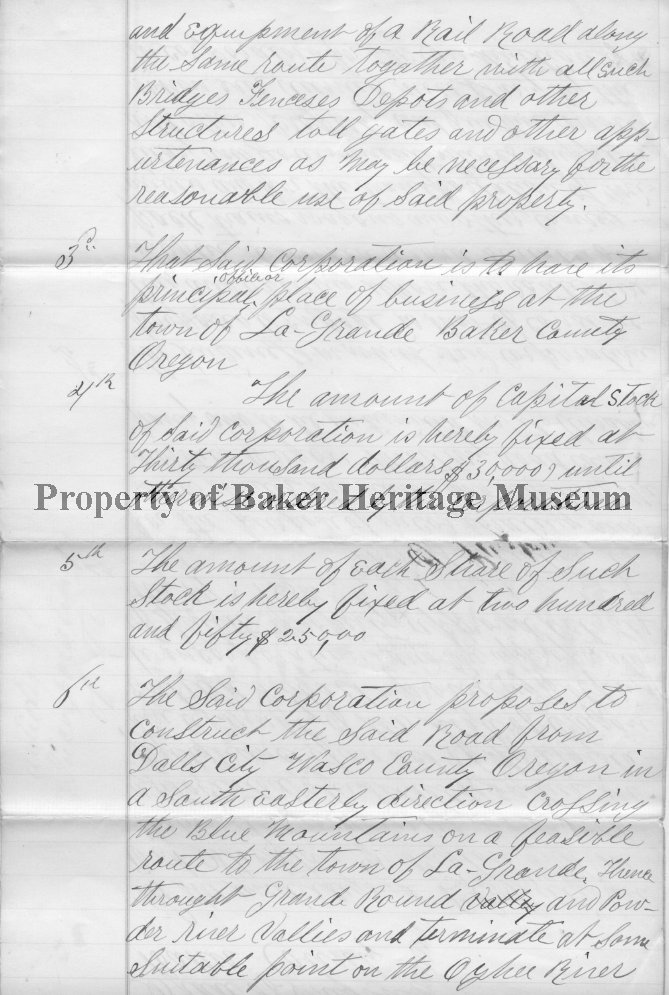 and equipment of a Rail Road along
the Same route together with all Such
Bridges Fenceses Depots and other
Structures toll gates and other app-
urtenances as May be necessary for the
reasonable use of Said property.
3d That Said Corporation is to have its
office or
principal place of business at the
town of La-Grande Baker County
Oregon
4th The amount of Capital Stock
of Said Corporation is hereby fixed at
Thirty thousand dollars $30,000 until
Property of Baker Heritage Museum
otherwise ordered by the
5th The amount of Each Share of Such
Stock is hereby fixed at two hundred
and fifty $250,00
6th The Said Corporation proposes to
Construct the Said Road from
Dalls City Wasco County Oregon in
a South Easterly direction Crossing
the Blue Mountains on a feasible
route to the town of La-Grande. Thence
throught Grande Round Valley and Pow-
der river Vallies and terminate at Some
Suitable point on the Oyhee River